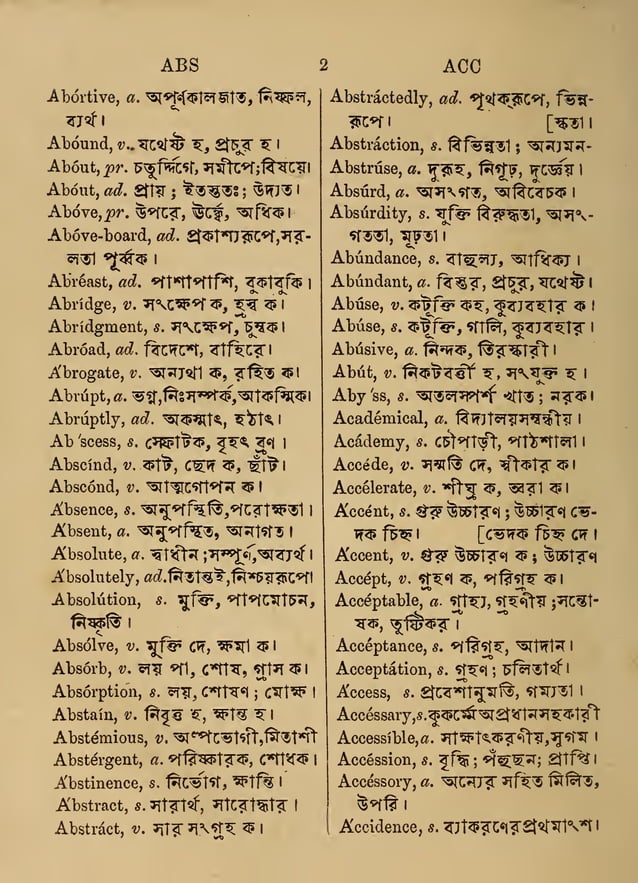 ABS 2 ACC
Abórtive, a. অপূর্ণকালজাত, নিষ্ফল,
ব্যর্থ।
Abóund, v. যথেষ্ট হ, প্রচুর হ।
Abóut, pr. চতুর্দ্দিগে, সমীপে; বিষয়ে।
Abóut, ad. প্রায়; ইতস্ততঃ; উদ্যত।
Abóve, pr. উপরে, উর্দ্ধে, অধিক।
Abóve-board, ad. প্রকাশ্যরূপে, সর-
লতা পূর্ব্বক।
Abréast, ad. পাশাপাশি, বুকাবুকি।
Abrídge, v. সংক্ষেপ ক, হ্রস্ব ক।
Abrídgment, s. সংক্ষেপ, চুম্বক।
Abróad, ad. বিদেশে, বাহিরে।
A'brogate, v. অন্যথা ক, রহিত ক।
Abrúpt, a. ভগ্ন, নিঃসম্পর্ক, আকস্মিক।
Abrúptly, ad. অকস্মাৎ, হঠাৎ।
Ab'scess, s. স্ফোটক, বৃহৎ ব্রণ।
Abscínd, v. কাট, ছেদ ক, ছাঁট।
Abscónd, v. আত্মগোপন ক।
A'bsence, s. অনুপস্থিতি, পরোক্ষতা।
A'bsent, a. অনুপস্থিত, অনাগত।
A'bsolute, a. স্বাধীন; সম্পূর্ণ, অব্যর্থ।
A'bsolutely, ad. নিতান্তই, নিশ্চয়রূপে।
Absolútion, s. মুক্তি, পাপমোচন,
নিষ্কৃতি।
Absólve, v. মুক্তি দে, ক্ষমা ক।
Absórb, v. লয় পা, শোষ, গ্রাস ক।
Absórption, s. লয়, শোষণ; মোক্ষ।
Abstaín, v. নিবৃত্ত হ, ক্ষান্ত হ।
Abstémious, v. অল্পভোগী, মিতাশী
Abstérgent, a. পরিষ্কারক, শোধক।
A'bstinence, s. নির্ভোগ, ক্ষান্তি।
A'bstract, s. সারার্থ, সারোদ্ধার।
Abstráct, v. সার সংগ্রহ ক।
Abstráctedly, ad. পৃথক্‌রূপে, ভিন্ন-
রূপে। [স্কতা।
Abstráction, s. বিভিন্নতা; অন্যমন-
Abstrúse, a. দুরূহ, নিগূঢ়, দুর্জ্ঞেয়।
Absúrd, a. অসংগত, অবিবেচক।
Absúrdity, s. যুক্তি বিরুদ্ধতা, অসং-
গততা, মূঢ়তা।
Abúndance, s. বাহুল্য, আধিক্য।
Abúndant, a. বিস্তর, প্রচুর, যথেষ্ট।
Abúse, v. কটূক্তি কহ, কুব্যবহার ক।
Abúse, s. কটূক্তি, গালি, কুব্যবহার।
Abúsive, a. নিন্দক, তিরস্কারী।
Abút, v. নিকটবর্ত্তী হ, সংযুক্ত হ।
Aby'ss, s. অতলস্পর্শ খাত; নরক।
Académical, a. বিদ্যালয়সম্বন্ধীয়।
Acádemy, s. চৌপাড়ী, পাঠশালা।
Accéde, v. সম্মতি দে, স্বীকার ক।
Accélerate, v. শীঘ্র ক, ত্বরা ক।
A'ccént, s. গুরু উচ্চারণ; উচ্চারণ ভে-
দক চিহ্ন। [ভেদক চিহ্ন দে।
A'ccent, v. গুরু উচ্চারণ ক; উচ্চারণ
Accépt, v. গ্রহণ ক, পরিগ্রহ ক।
Accéptable, a. গ্রাহ্য, গ্রহণীয়; সন্তো-
ষক, তুষ্টিকর।
Accéptance, s. পরিগ্রহ, আদান।
Acceptátion, s. গ্রহণ; চলিতার্থ।
A'ccess, s. প্রবেশানুমতি, গম্যতা।
Accéssary, s. কুকর্ম্মে অপ্রধানসহকারী
Accessíble, a. সাক্ষাৎকরণীয়, সুগম।
Accéssion, s. বৃদ্ধি; পঁহুছন; প্রাপ্তি।
Accéssory, a. অন্যের সহিত মিলিত,
উপরি।
A'ccidence, s. ব্যাকরণের প্রথমাংশ।